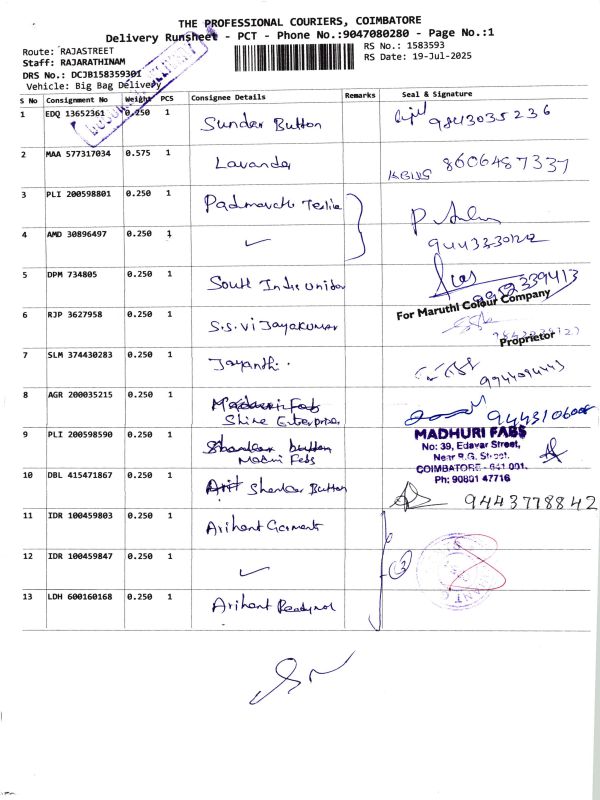 THE PROFESSIONAL COURIERS, COIMBATORE
Delivery Runsheet - PCT - Phone No.:9047080280 - Page No.:1
Route: RAJASTREET
RS No.: 1583593
Staff: RAJARATHINAM
RS Date: 19-Jul-2025
DRS No.: DCJB158359301
Vehicle: Big Bag Delivery
S No Consignment No Weight PCS Consignee Details Remarks Seal & Signature
1 EDQ 13652361 0.250 1 Sunder Button 9843035236
2 MAA 577317034 0.575 1 Lavanda 8606487337
3 PLI 200598801 0.250 1 Padmavathi
4 AMD 30896497 0.250 1 ✓
5 DPM 734805 0.250 1 South India
For Maruthi Colour Company
6 RJP 3627958 0.250 1 S.S. Vijayakumar
Proprietor
7 SLM 374430283 0.250 1 Jayanthi.
8 AGR 200035215 0.250 1 Madhuri Fabs
Shine Enterprises
9 PLI 200598590 0.250 1 Shankar button
Madri Febs
MADHURI FABS
No: 39, Edavar Street,
Near R.G. Street,
COIMBATORE - 641 001.
Ph: 90801 47716
10 DBL 415471867 0.250 1 Shankar Button 9443778842
11 IDR 100459803 0.250 1 Arihant Garments
12 IDR 100459847 0.250 1 ✓
13 LDH 600160168 0.250 1 Arihant